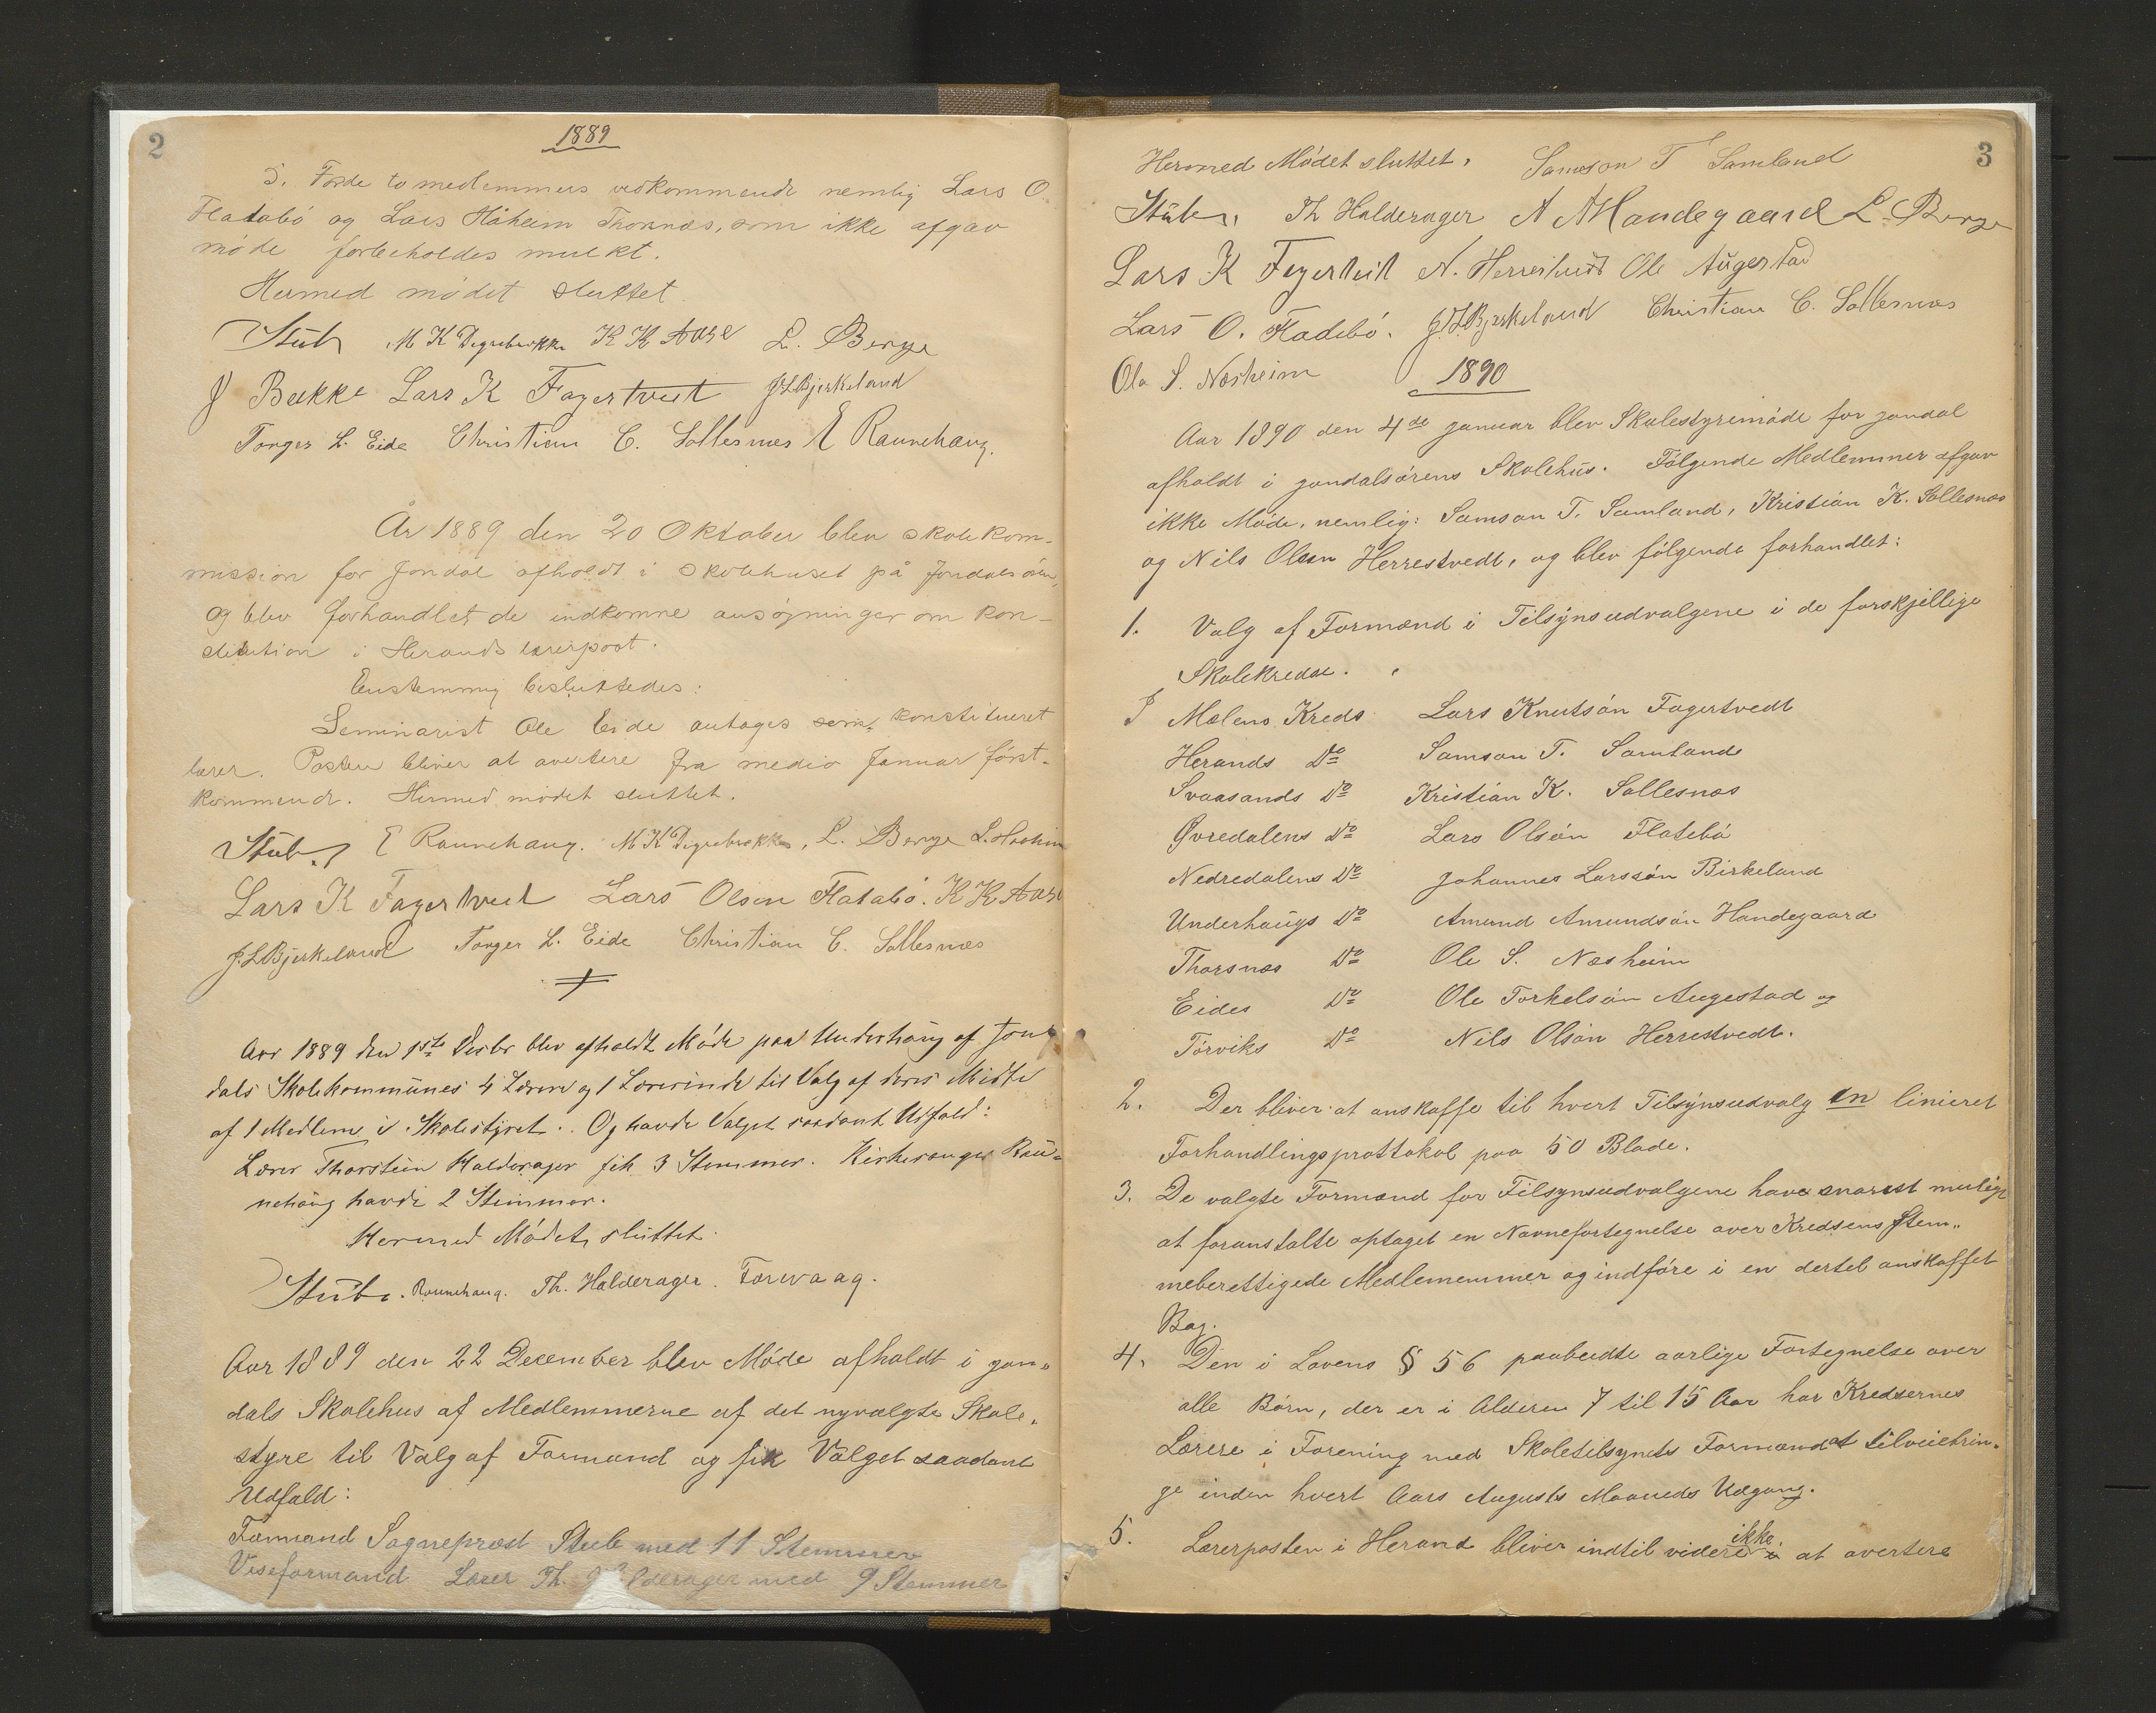 2
1889
5. For de to medlemmers vedkommende nemlig Lars O.
Flatabö og Lars Håheim Thorsnæs, som ikke afgav
möde forbeholdes mulkt.
Hermed mödet sluttet.
Stub M K Digrebrække K K Aase L. Berge
J Bakke Lars K Fagertveit J L Bjerkeland
Torger L. Eide Christian C. Sollesnes E Raunehaug.
År 1889 den 20 Oktober blev skolekom-
mission for Jondal afholdt i skolehuset på Jondalsören,
og blev forhandlet de indkomne ansögninger om kon-
stitution i Herands lærerpost.
Enstemmig besluttedes:
Seminarist Ole Eide antages som konstitueret
lærer. Posten bliver at avertere fra medio Januar först-
kommende. Hermed mödet sluttet.
Stub. E Raunehaug. M K Digrebrække, L. Berge L. Haaheim
Lars K Fagertveit Lars Olsen Flatabö. K K Aase
J. L Bjerkeland Torger L. Eide Christian C. Sollesnæs
Aar 1889 den 1ste Decbr blev afholdt Möde paa Underhaug af Jon-
dals Skolekommünes 4 Lærere og 1 Lærerinde til Valg af deres Midte
af 1 Medlem i Skolestyret. Og havde Valget saadant Udfald:
Lærer Thorstein Halderager fik 3 Stemmer. Kirkesanger Rau-
nehaug havde 2 Stemmer.
Hermed Mödet sluttet.
Stub. Raunehaug. Th. Halderager. Torvaag.
Aar 1889 den 22 December blev Möde afholdt i Jon-
dals Skolehus af Medlemmerne af det nyvalgte Skole-
styre til Valg af Formand og fik Valget saadant
Udfald:
Formand Sogneprest Stub med 11 Stemmer
Viseformand Lærer Th. Halderager med 9 Stemmer
3
Hermed Mödet sluttet. Samson T Samland
Stub. Th Halderager A A Handegaard L. Berge
Lars K Fagertveit N. Herrestvedt Ole Augestad
Lars O. Fladebö. J. L Bjerkeland Christian C. Sollesnæs
Ole S. Næsheim
1890
Aar 1890 den 4de Januar blev Skolestyremöde for Jondal
afholdt i Jondalsörens Skolehus. Fölgende Medlemmer afgav
ikke Möde, nemlig: Samson T. Samland, Kristian K. Sollesnæs
og Nils Olsen Herrestvedt, og blev fölgende forhandlet:
1. Valg af Formænd i Tilsynsudvalgene i de forskjellige
Skolekredse.
I Mælens Kreds Lars Knutsön Fagertvedt
Herands Do Samson T. Samland
Svaasands Do Kristian K. Sollesnæs
Øvredalens Do Lars Olsön Flatebö
Nedredalens Do Johannes Larssön Birkeland
Underhaugs Do Amund Amundsön Handegaard
Thorsnæs Do Ole S. Næsheim
Eides Do Ole Torkelsön Augestad og
Törviks Do Nils Olsön Herrestvedt.
2. Der bliver at anskaffe til hvert Tilsynsudvalg en linieret
Forhandlingsprottokol paa 50 Blade.
3. De valgte Formænd for Tilsynsudvalgene have snarest muligt
at foranstalte optaget en Navnefortegnelse over Kredsens Stem-
meberettigede Medlemmemmer og indföre i en dertel anskaffet
Bog.
4. Den i Lovens § 56 paabudte aarlige Fortegnelse over
alle Börn, der er i Alderen 7 til 15 Aar har Kredsernes
Lærere i Forening med Skoletilsynets Formænd at tilveiebrin-
ge inden hvert Aars Augusts Maaneds Udgang.
5. Lærerposten i Herand bliver indtil videre ikke at avertere